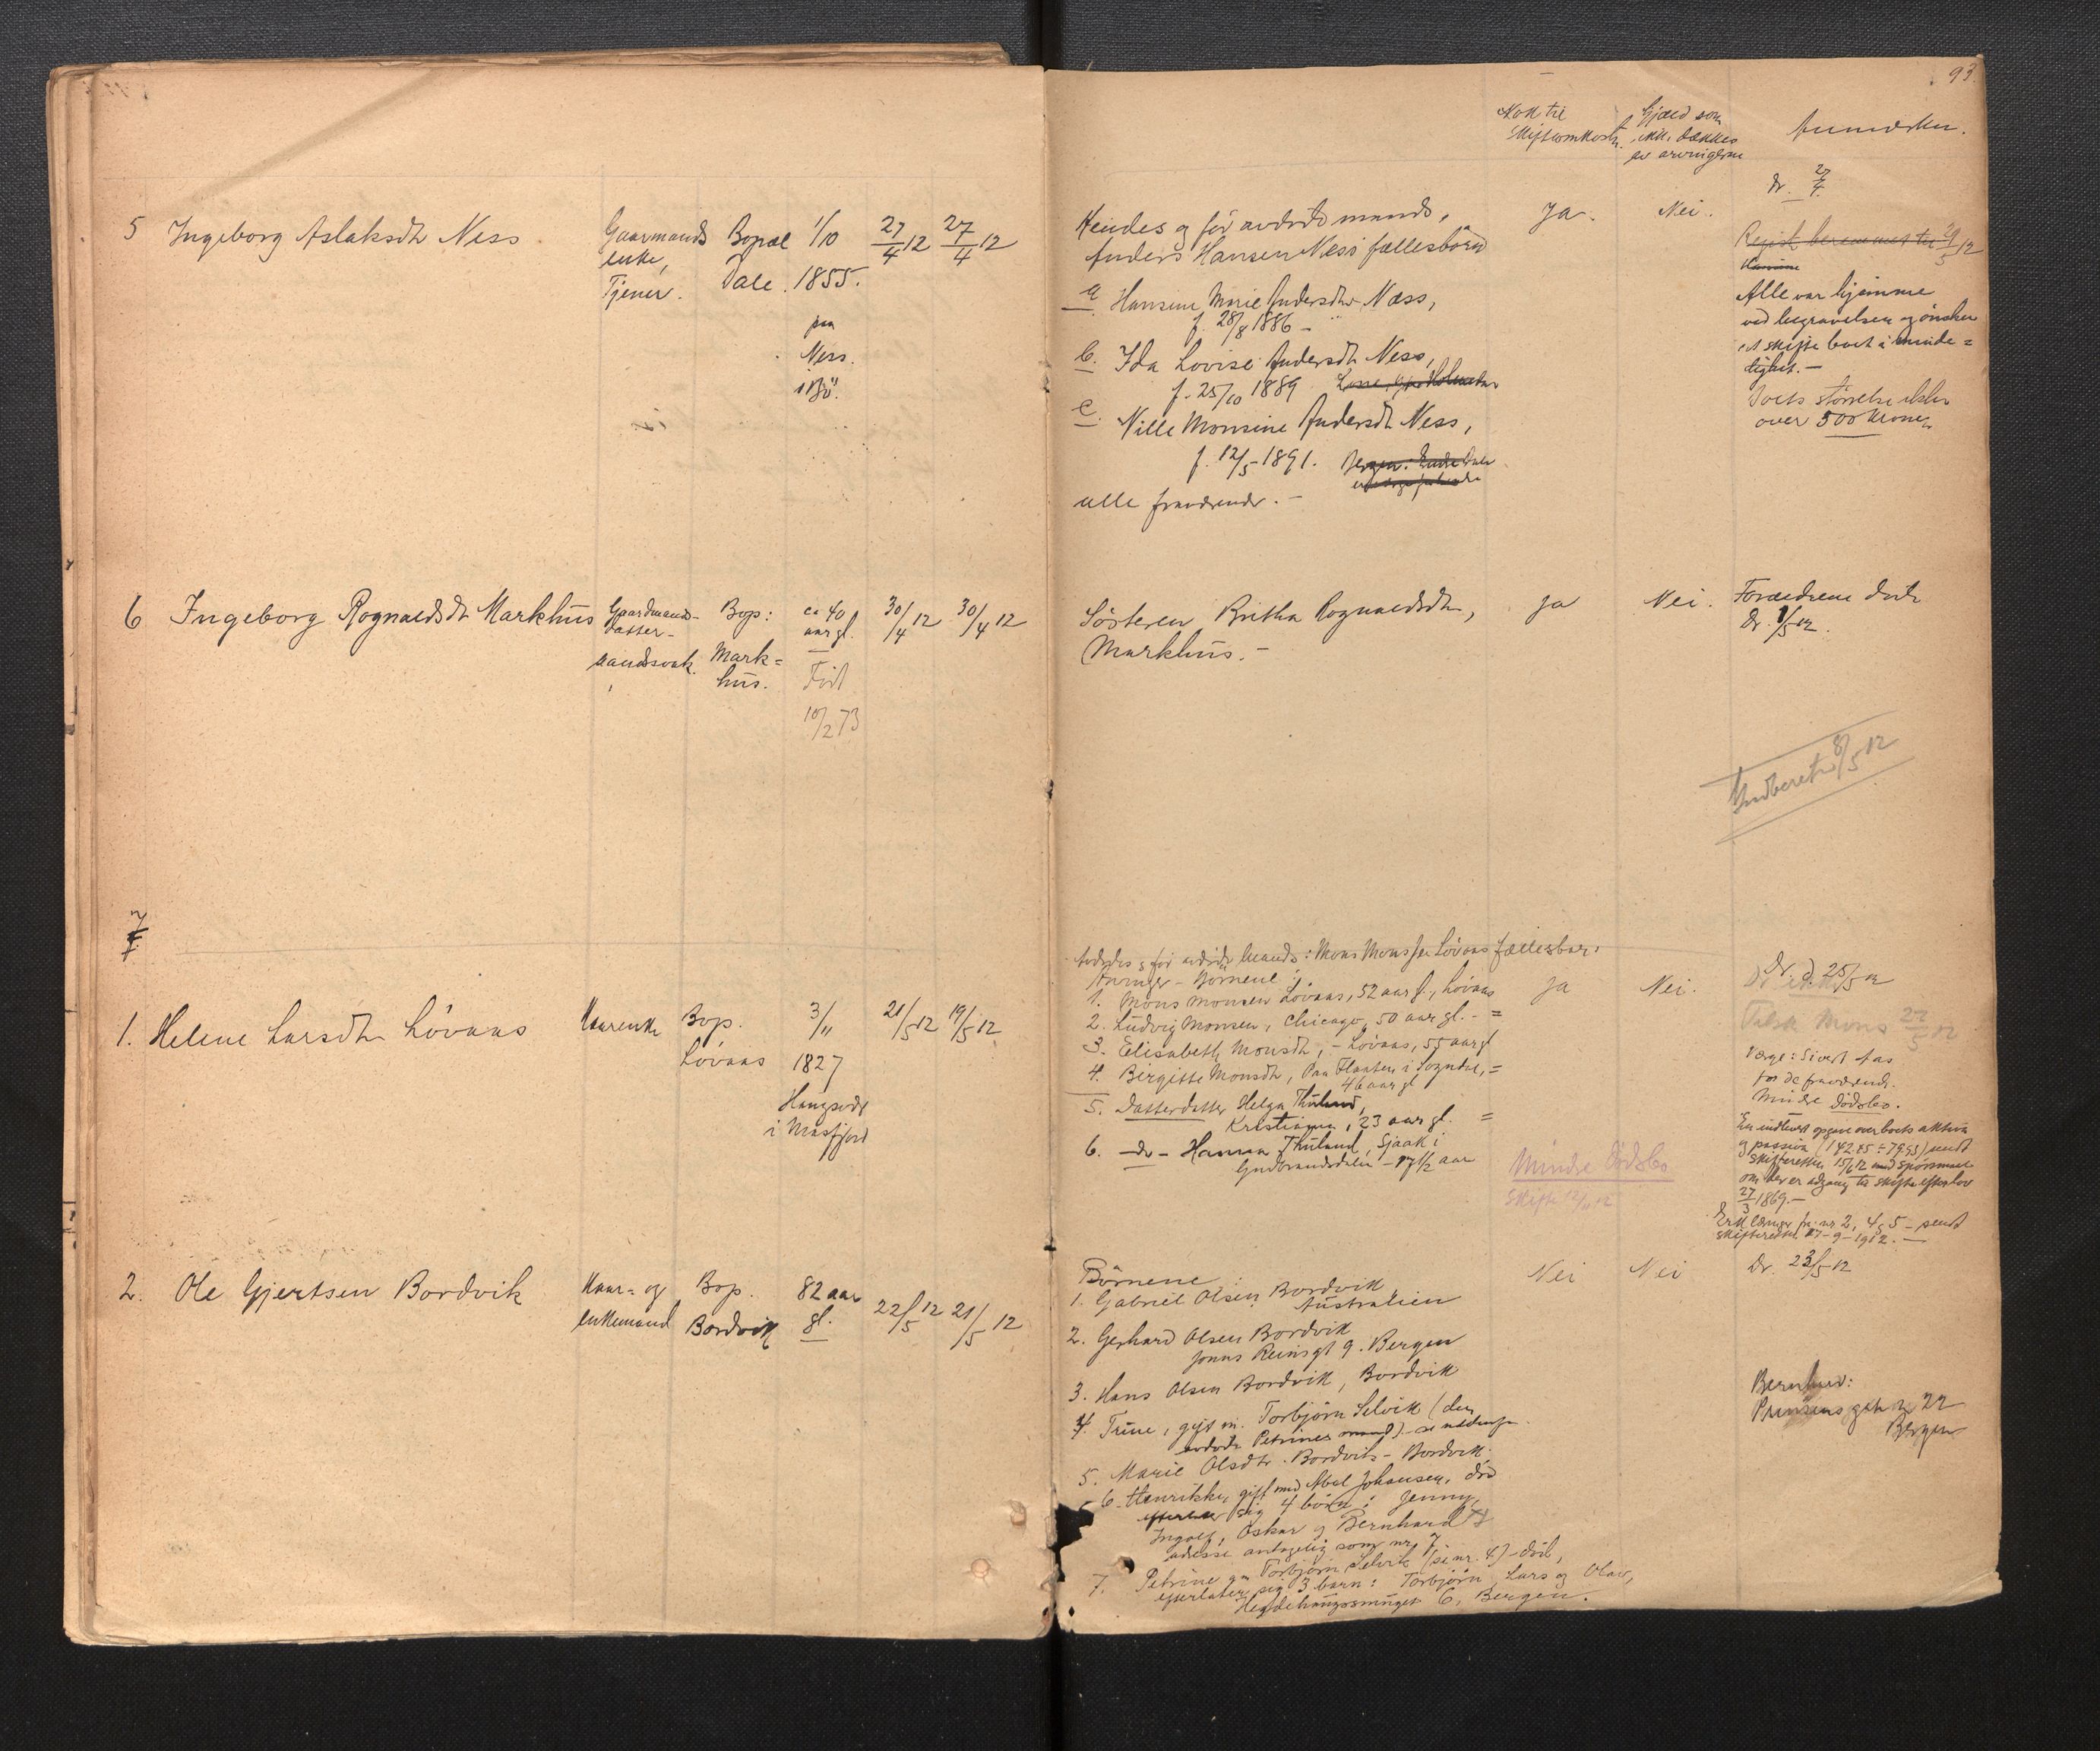 93
Nok til
skifteomkostn.
Gjæld som
ikke dækkes
av arvingerne
Anmerkn.
5 Ingeborg Aslaksdtr Ness
Gaarmands
enke,
Tjener.
Bopæl
Dale.
1/10
1855.
paa
Ness.
i Bø.
27/4 12
27/4 12
Hendes og før avdøde mands,
Anders Hansen Ness fællesbørn
a Hansine Marie Andersdtr Næss,
f. 28/8 1886 –
b. Ida Lovise Andersdtr Ness,
f. 25/10 1889
c. Nille Monsine Andersdtr Ness,
f. 12/5 1891.
alle fraværende. –
Ja.
Nei.
Dr. 27/4.
Regist. berammet til 29/5 12
Alle var hjemme
ved begravelsen og ønsker
at skifte boet i minde=
lighet. –
Boets størrelse
over 500 kroner
6 Ingeborg Rognaldsdtr Markhus
Gaardmands-
datter –
sandssvak.
Bop:
Mark=
hus.
ca 40
aar gl.
Født
10/2 73
30/4 12
30/4 12
Søsteren Britha Rognaldsdtr,
Markhus. –
Ja
Nei.
Forældrene døde
Dr. 1/5 12.
Indberetn 8/5 12
7
1. Helene Larsdtr Lövaas
Kaarenke
Bop.
Lövaas
3/11
1827
Haugsvær
i Masfjord
21/5 12
19/5 12
og før avdøde mands: Mons Monssen Lövaas fællesbar:
Arvinger – Börnene:
1. Mons Monsen Lövaas, 52 aar gl., Lövaas
2. Ludvig Monsen, Chicago, 50 aar gl. – =
3. Elisabeth Monsdtr, – Lövaas, 55 aar gl
4. Birgitte Monsdtr, Paa Flaaten i Sogndal, =
46 aar gl
5. Datterdatter Helga Thuland,
Kristiania, 23 aar gl. =
6. – do – Hanna Thuland, Sjaak i
Gudbrandsdalen – 17 1/2 aar
Ja
Nei.
Mindre dødsbo
Skifte 12/11 12
Dr. d. 25/5 12
Mons 27/5 12
Verge: Sivert Aas
for de fraværende.
Mindre dødsbo.
En indlevert opgave over boets aktiva
og passiva (142.85 ÷ 79.95) sendt
skifteretten 15/6 12 med spörsmaal
om der er adgang til skifte efter lov
27/3 1869. –
Erklæringer fra nr 2, 4 og 5 – sendt
skifteretten 27–9–1912. –
2. Ole Gjertsen Bordvik
Kaar= og
enkemand
Bop.
Bordvik
82 aar
gl.
22/5 12
21/5 12
Börnene:
1. Gabriel Olsen Bordvik
Australien
2. Gerhard Olsen Bordvik
Jonas Reinsgt 9. Bergen
3. Hans Olsen Bordvik, Bordvik
4. Trine, gift m. Torbjörn Selvik (den
avdøde Petrines mand) – se nedenfor
5. Marie Olsdtr. Bordvik – Bordvik.
6. Henrikke, gift med Abel Johansen, død
efterlater sig 4 börn: Jenny,
Ingolf, Oskar og Bernhard
adresse antagelig som nr. 7
7. Petrine gm Torbjörn Selvik (se nr. 4) – död,
efterlater sig 3 barn: Torbjörn, Lars og Olav,
Heggdehaugssmuget 6, Bergen.
Nei
Nei
Dr. 23/5 12
Bernhard:
Prinsens gate 22
Bergen